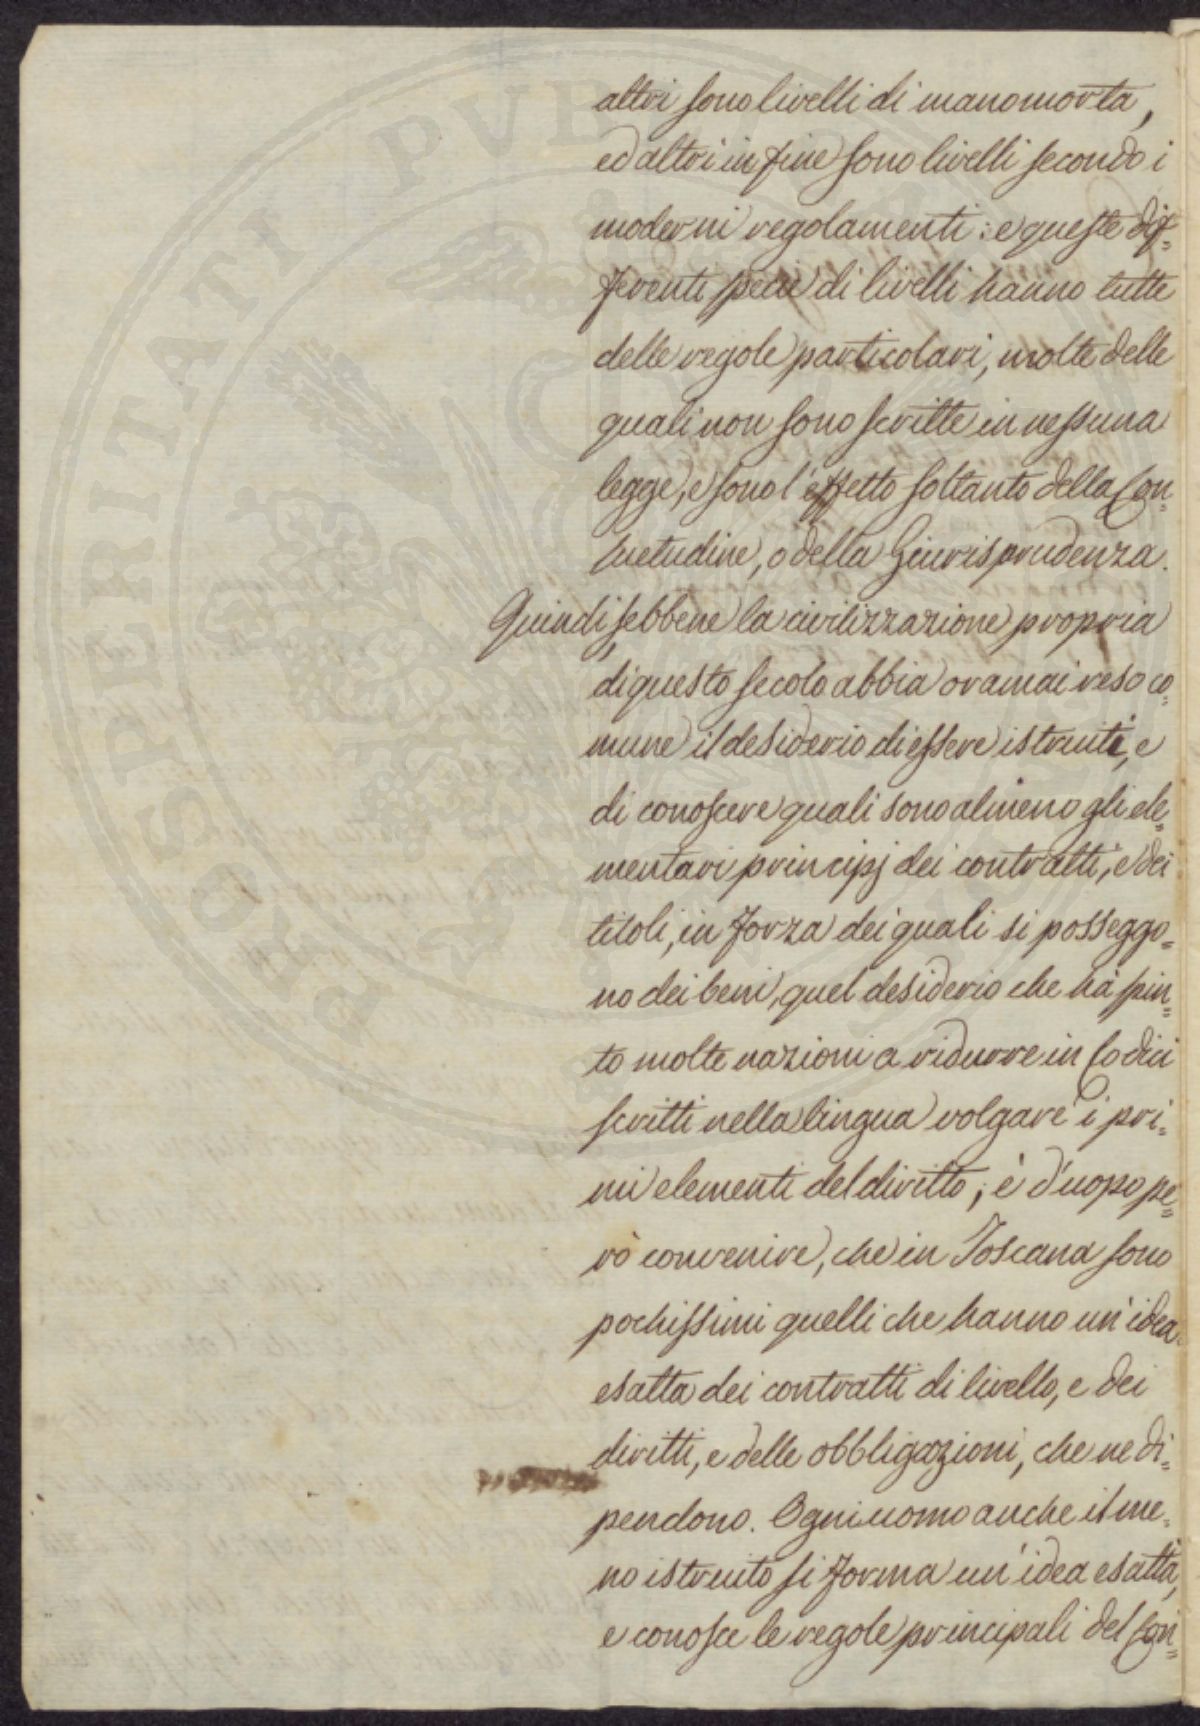 altri sono livelli di manomorta,
ed altri in fine sono livelli secondo i
moderni regolamenti: e queste dif=
ferenti specie di livelli hanno tutte
delle regole particolari, molte delle
quali non sono scritte in nessuna
legge, e sono l'effetto soltanto della Con=
suetudine, o della Giurisprudenza.
Quindi, sebbene la civilizzazione propria
di questo secolo abbia oramai reso co=
mune il desiderio di essere istruiti, e
di conoscere quali sono almeno gli ele=
mentari principj dei contratti, e dei
titoli, in forza dei quali si posseggo=
no dei beni, quel desiderio che hà spin=
to molte nazioni a ridurre in Codici
scritti nella lingua volgare i pri=
mi elementi del diritto; è d'uopo pe=
rò convenire, che in Toscana sono
pochissimi quelli che hanno un'idea
esatta dei contratti di livello, e dei
diritti, e delle obbligazioni, che ne di=
pendono. Ogni uomo anche il me=
no istruito si forma un'idea esatta,
e conosce le regole principali del Con=
PROSPERITATI PVB